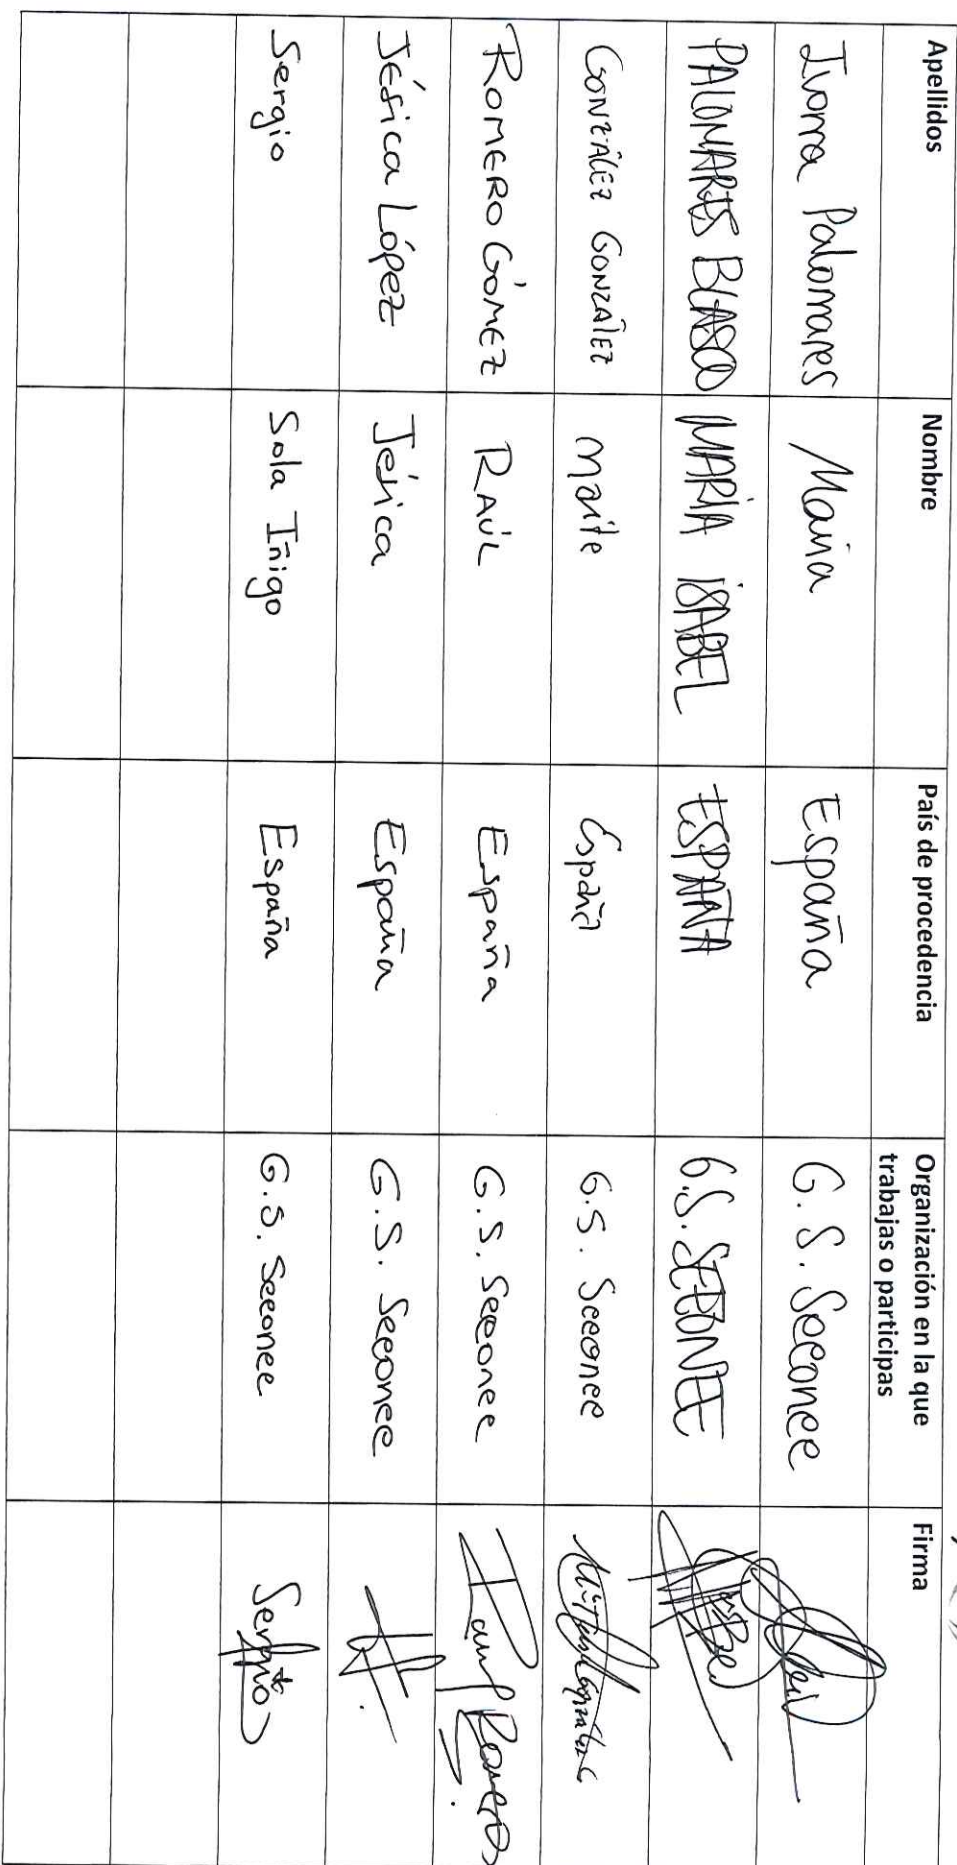 Apellidos Nombre País de procedencia Organización en la que trabajas o participas Firma
Palomares María España G.S. Seeonee
PALOMARES BLASCO MARÍA ISABEL ESPAÑA G.S. SEEONEE
GONZÁLEZ GONZÁLEZ Marite España G.S. Seeonee
ROMERO GÓMEZ RAÚL España G.S. Seeonee Raúl Romero
Jésica López Jésica España G.S. Seeonee
Sergio Sola Iñigo España G.S. Seeonee Sergio